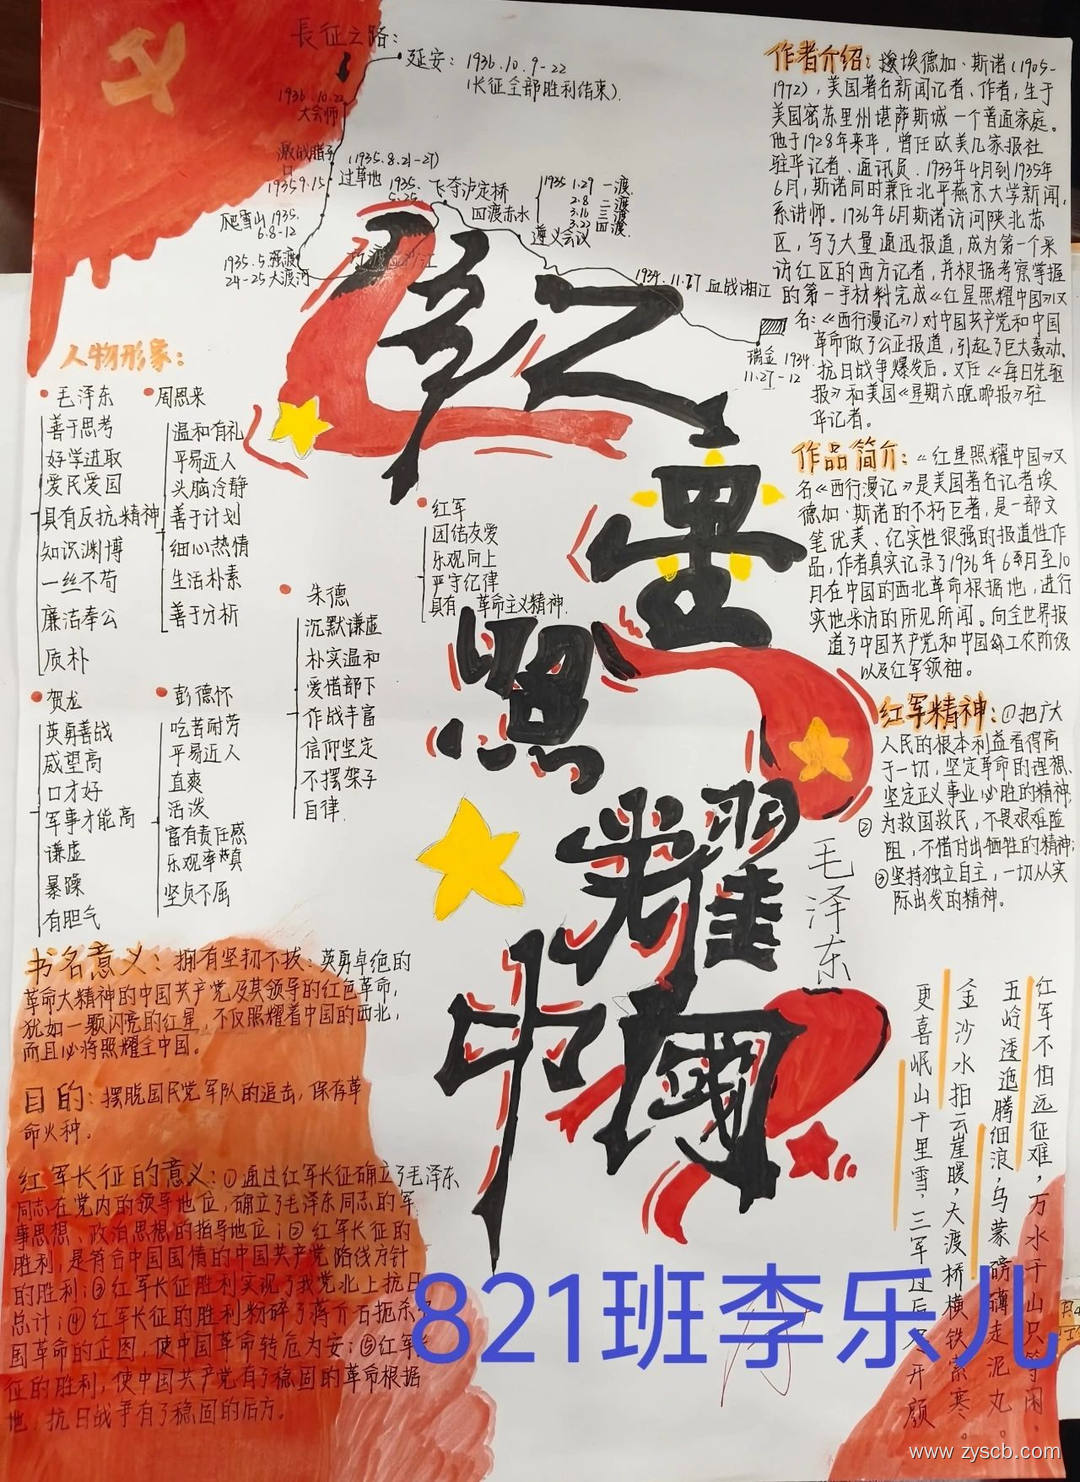 長征之路:
延安: 1936.10.9-22
(长征全部胜利结束).
1936.10.22
大会师
激战腊子
口
19359.15
(1935.8.21-27)
过草地
爬雪山 1935.
6.8-12
1935.5.强渡
24-25大渡河
1935.
5.25
飞夺泸定桥
四渡赤水
1935 1.29 一渡
2.8 二渡
3.16 三渡
3.22 四渡.
遵义会议
血战湘江
瑞金 1934.
11.27-12
红星照耀中国
人物形象:
毛泽东
善于思考
好学进取
爱民爱国
具有反抗精神
知识渊博
一丝不苟
廉洁奉公
质朴
周恩来
温和有礼
平易近人
头脑冷静
善于计划
细心热情
生活朴素
善于分析
朱德
沉默谦虚
朴实温和
爱惜部下
作战丰富
信仰坚定
不摆架子
自律.
红军
团结友爱
乐观向上
严守纪律
具有 革命主义精神.
贺龙
英勇善战
威望高
口才好
军事才能高
谦虚
暴躁
有胆气
彭德怀
吃苦耐劳
平易近人
直爽
活泼
富有责任感
乐观率真
坚贞不屈
书名意义: 拥有坚韧不拔: 英勇卓绝的
革命大精神的中国共产党及其领导的红色革命,
犹如一颗闪亮的红星, 不仅照耀着中国的西北,
而且必将照耀全中国。
目的: 摆脱国民党军队的追击, 保存革
命火种.
红军长征的意义: ①通过红军长征确立了毛泽东
同志在党内的领导地位, 确立了毛泽东同志的军
事思想、政治思想的指导地位; ②红军长征的
胜利, 是符合中国国情的中国共产党路线方针
的胜利; ③红军长征胜利实现了我党北上抗日
总计; ④红军长征的胜利粉碎了蒋介石扼杀
国革命的企图, 使中国革命转危为安; ⑤红军
征的胜利, 使中国共产党有了稳固的革命根据
地, 抗日战争有了稳固的后方。
作者介绍: 埃德加·斯诺(1905-
1972), 美国著名新闻记者、作者, 生于
美国密苏里州堪萨斯城一个普通家庭。
他于1928年来华, 曾任欧美几家报社
驻华记者、通讯员. 1933年4月到1935年
6月, 斯诺同时兼任北平燕京大学新闻
系讲师。1936年6月斯诺访问陕北苏
区, 写了大量通迅报道, 成为第一个采
访红区的西方记者, 并根据考察掌握
的第一手材料完成《红星照耀中国》(又
名:《西行漫记》)对中国共产党和中国
革命做了公正报道, 引起了巨大轰动.
抗日战争爆发后。又任《每日先驱
报》和美国《星期六晚邮报》驻
华记者。
作品简介:《红星照耀中国》又
名《西行漫记》是美国著名记者埃
德加·斯诺的不朽巨著, 是一部文
笔优美、纪实性很强的报道性作
品, 作者真实记录了1936年6月至10
月在中国的西北革命根据地, 进行
实地采访的所见所闻。向全世界报
道了中国共产党和中国工农阶级
以及红军领袖。
红军精神: ①把广大
人民的根本利益看得高
于一切, 坚定革命的理想、
坚定正义事业必胜的精神;
②为救国救民, 不畏艰难险
阻, 不惜付出牺牲的精神;
③坚持独立自主, 一切从实
际出发的精神。
毛泽东
红军不怕远征难, 万水千山只等闲.
五岭逶迤腾细浪, 乌蒙磅礴走泥丸。
金沙水拍云崖暖, 大渡桥横铁索寒。
更喜岷山千里雪, 三军过后尽开颜
821班李乐儿
www.zyscb.com